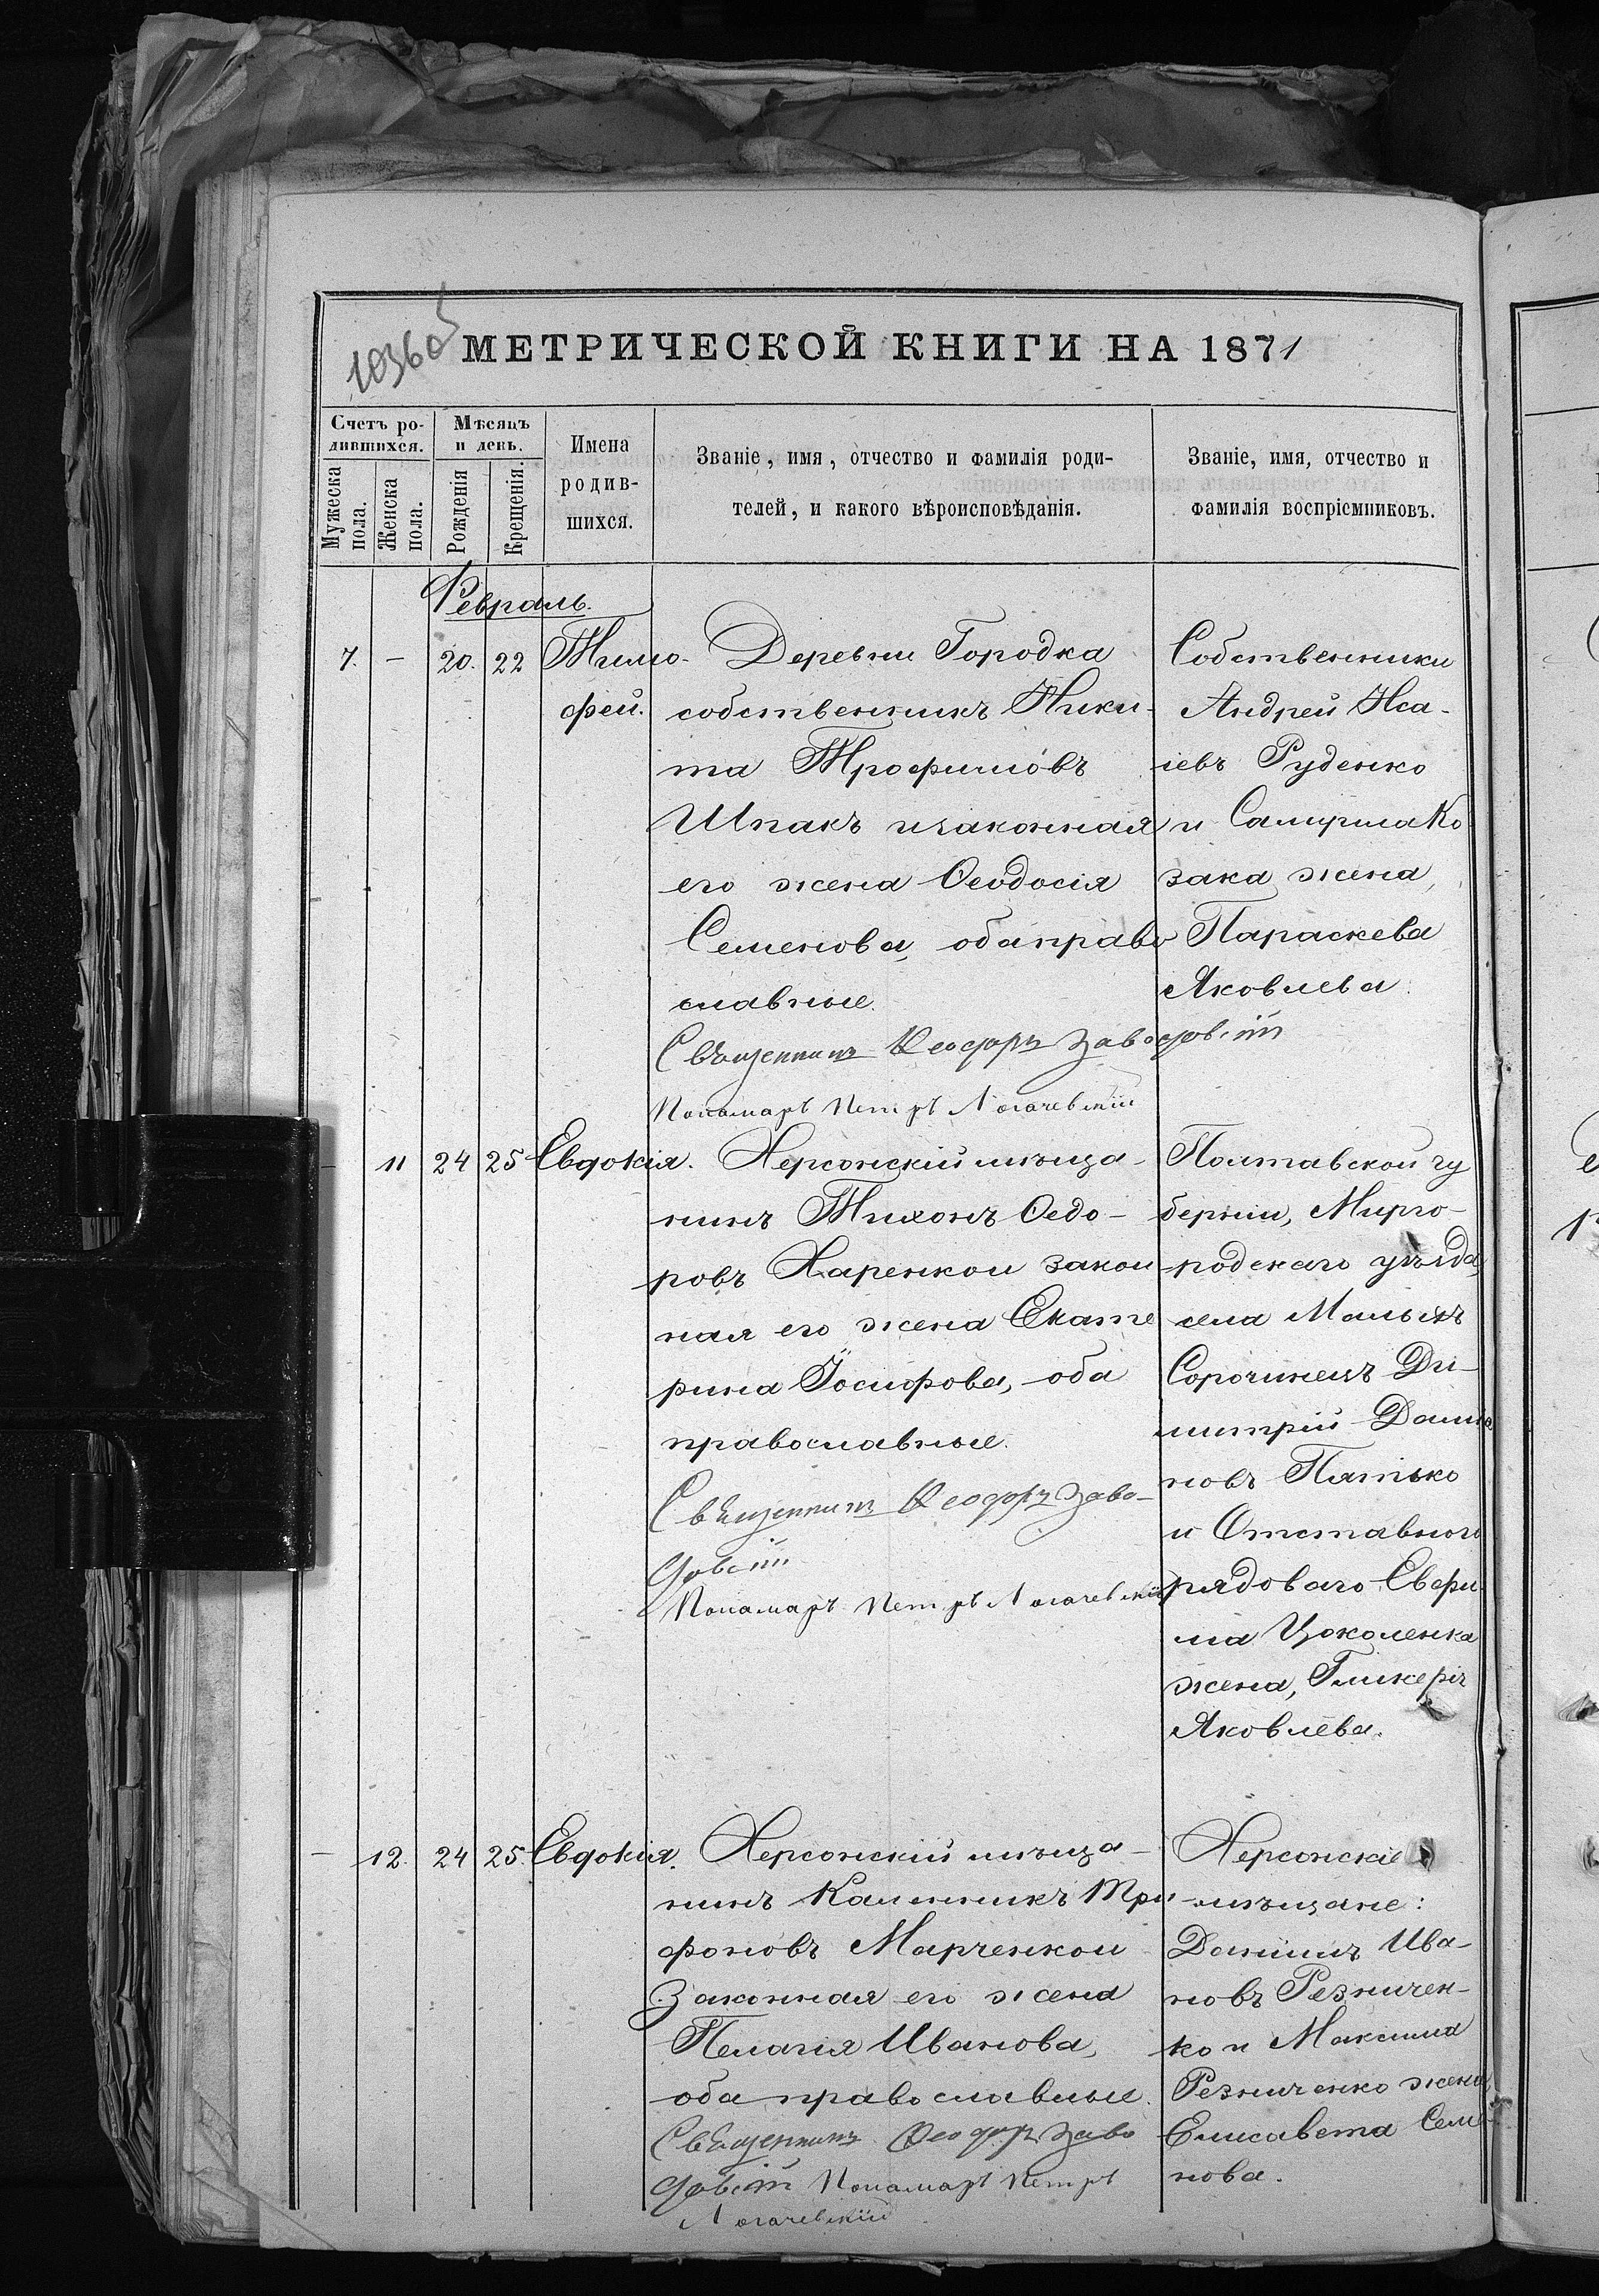 10360б
МЕТРИЧЕСКОЙ КНИГИ НА 1871
Счетъ ро-
дившихся.
Мѣсяцъ
и день.
Мужеска
пола.
Женска
пола.
Рожденія
Крещенія.
Имена
родив-
шихся.
Званіе, имя, отчество и фамилія роди-
телей, и какого вѣроисповѣданія.
Званіе, имя, отчество и
фамилія воспріемниковъ.
Февраль.
7. – 20. 22 Тимо-
фей.
Деревни Городка
собственникъ Ники-
та Трофимовъ
Шпакъ и законная
его жена Ѳеодосія
Семенова, оба право
славные.
Священникъ Ѳеодоръ Заводовскій
Пономарь Петръ Логачевскій
Собственники
Андрей Иса-
іевъ Руденко
и Самуила Ко
зака жена,
Параскева
Яковлева.
– 11 24 25 Евдокія.
Херсонскій мѣща-
нинъ Тихонъ Ѳедо-
ровъ Харенко и закон
ная его жена Екате
рина Іосифова, оба
православные.
Священникъ Ѳеодоръ Заво-
довскій
Пономарь Петръ Логачевскій
Полтавской гу
берніи, Мирго-
родскаго уѣзда,
села Малыхъ
Сорочинецъ Ди-
митрій Даміа
новъ Пятько
и Отставного
рядоваго Евфи
ма Цоколенка
жена, Гликерія
Яковлева.
– 12. 24 25. Евдокія.
Херсонскій мѣща-
нинъ Калинникъ Три
фоновъ Марченко и
Законная его жена
Пелагія Иванова,
оба православные.
Священникъ Ѳеодоръ Заво
довскій Пономарь Петръ
Логачевскій
Херсонскіе
мѣщане:
Даніилъ Ива-
новъ Резничен-
ко и Максима
Резниченко жена
Елисавета Семе
нова.